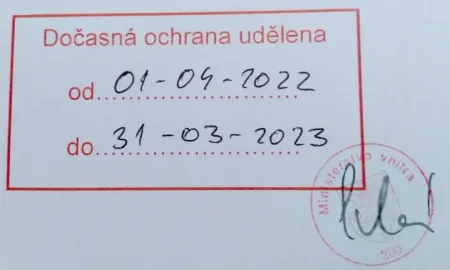 Dočasná ochrana udělena
od 01-04-2022
do 31-03-2023
Ministerstvo vnitra
200